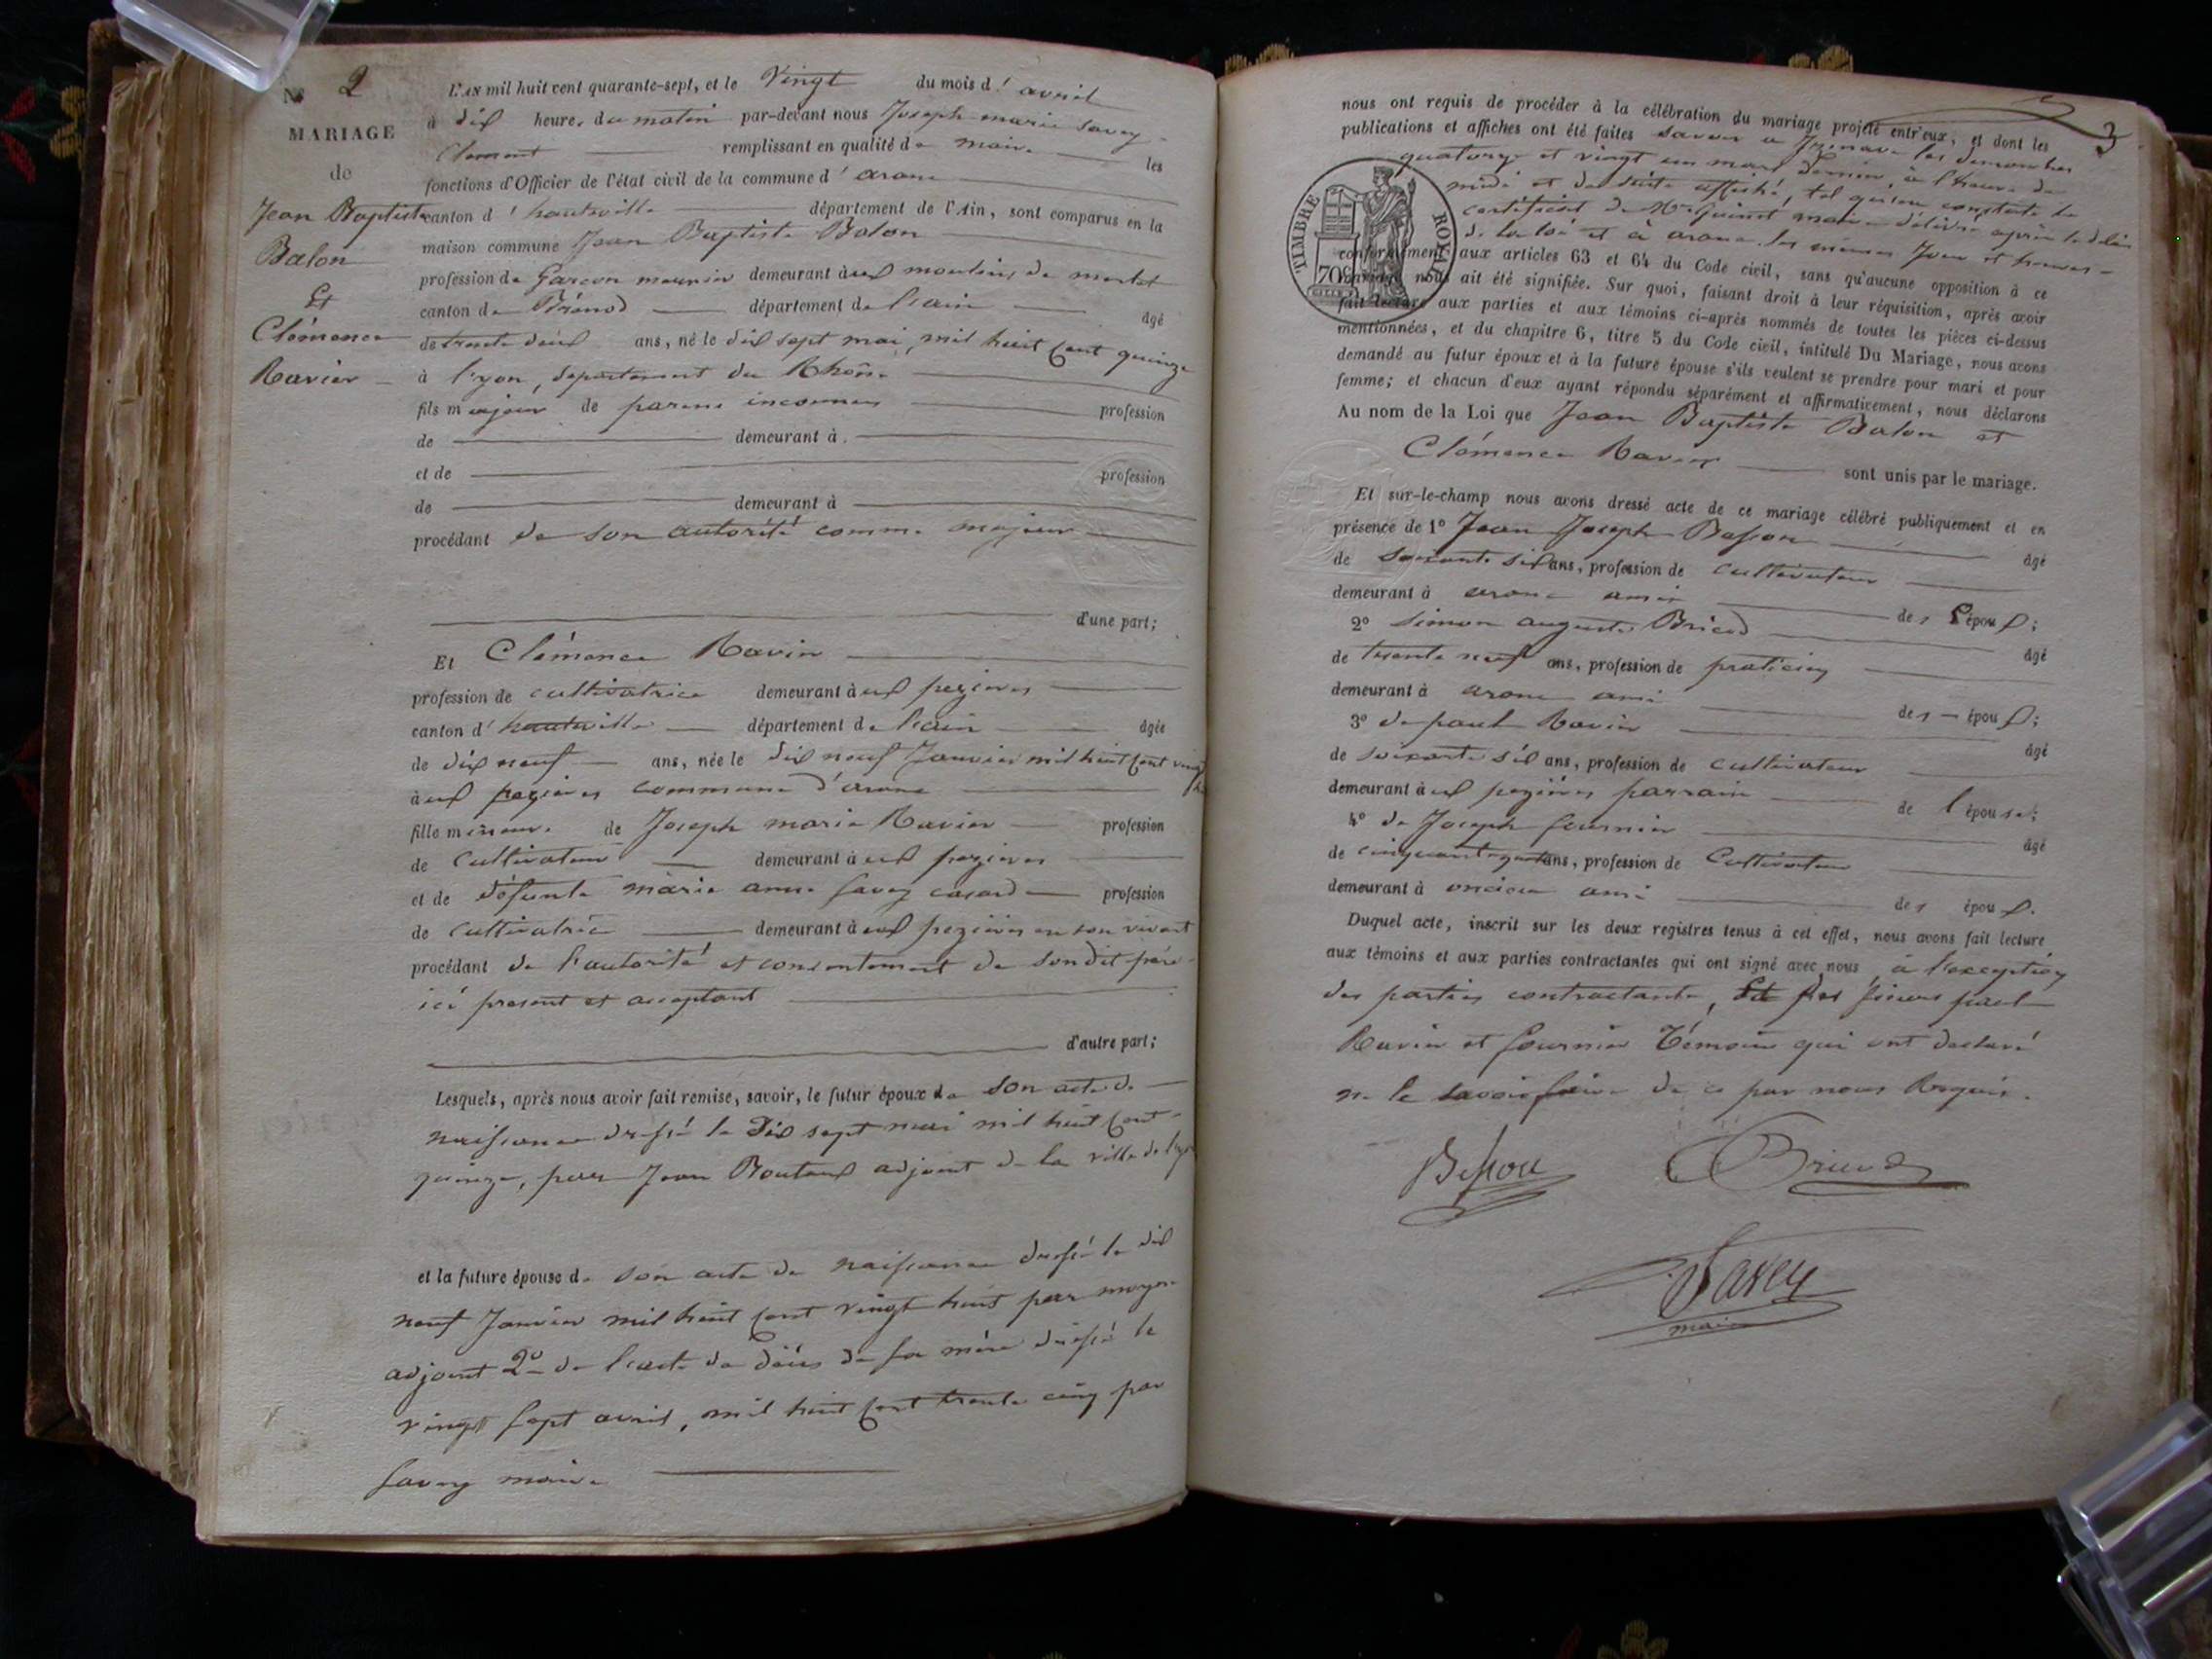 N° 2
MARIAGE
de
Jean Baptiste
Balon
Et
Clémence
Ravier
L'AN mil huit cent quarante-sept, et le Vingt du mois d'avril
à dix heures du matin par-devant nous Joseph marie Savey
Clement remplissant en qualité de maire les
fonctions d'Officier de l'état civil de la commune d'arane
canton d'hauteville département de l'Ain, sont comparus en la
maison commune Jean Baptiste Balon
profession de Garçon meunier demeurant à aux moulins de
canton de Brénod département de l'ain âgé
de trente deux ans, né le dix sept mai, mil huit Cent quinze
à lyon, département du Rhône
fils majeur de parens inconnus profession
de demeurant à
et de profession
de demeurant à
procédant de son autorité comme majeur
d'une part;
Et Clémence Ravier
profession de cultivatrice demeurant à aux pezières
canton d'hauteville département de l'ain âgée
de dix neuf ans, née le dix neuf Janvier mil huit Cent vingt
à aux pezières commune d'arane
fille mineure de Joseph marie Ravier profession
de Cultivateur demeurant à aux pezières
et de défunte marie anne Savey profession
de Cultivatrice demeurant à aux pezières en son vivant
procédant de l'autorité et consentement de son dit père
ici présent et acceptant
d'autre part;
Lesquels, après nous avoir fait remise, savoir, le futur époux de son acte de
naissance dressé le Dix sept mai mil huit Cent
quinze, par Jean adjoint de la ville de lyon
et la future épouse de son acte de naissance dressé le dix
neuf Janvier mil huit Cent vingt huit par
adjoint 2° de l'acte de décès de sa mère dressé le
vingt Sept avril, mil huit Cent trente cinq par
Savey maire
3
nous ont requis de procéder à la célébration du mariage projeté entr'eux, et dont les
publications et affiches ont été faites savoir à les dimanches
quatorze et vingt un mars dernier, à l'heure de
midi et de suite affiché, tel qu'en constate le
certificat de Mr Guinet maire délivré après le délai
de la loi et à arane les mêmes Jour et heures
TIMBRE ROYAL
70c
conformément aux articles 63 et 64 du Code civil, sans qu'aucune opposition à ce
mariage nous ait été signifiée. Sur quoi, faisant droit à leur réquisition, après avoir
fait lecture aux parties et aux témoins ci-après nommés de toutes les pièces ci-dessus
mentionnées, et du chapitre 6, titre 5 du Code civil, intitulé Du Mariage, nous avons
demandé au futur époux et à la future épouse s'ils veulent se prendre pour mari et pour
femme; et chacun d'eux ayant répondu séparément et affirmativement, nous déclarons
Au nom de la Loi que Jean Baptiste Balon et
Clémence Ravier sont unis par le mariage.
Et sur-le-champ nous avons dressé acte de ce mariage célébré publiquement et en
présence de 1° Jean Joseph Besson âgé
de soixante six ans, profession de cultivateur
demeurant à arane ami des époux;
2° Simon auguste Briend âgé
de trente neuf ans, profession de praticien
demeurant à arane ami des époux;
3° de paul Ravier âgé
de soixante six ans, profession de cultivateur
demeurant à aux pezières parrain de l'épouse;
4° de Joseph fournier âgé
de ans, profession de Cultivateur
demeurant à oncieu ami des époux.
Duquel acte, inscrit sur les deux registres tenus à cet effet, nous avons fait lecture
aux témoins et aux parties contractantes qui ont signé avec nous, à l'exception
des parties contractante, paul
Ravier et fournier Témoins qui ont déclaré
ne le savoir faire de ce par nous Requis.
Besson
Briend
Savey
maire